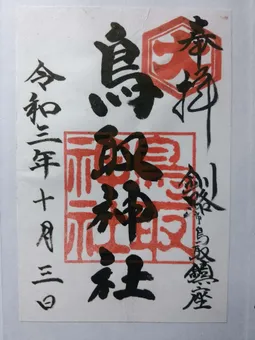 奉拝
釧路市鳥取鎮座
鳥取神社
令和三年十月三日
大
鳥取神社